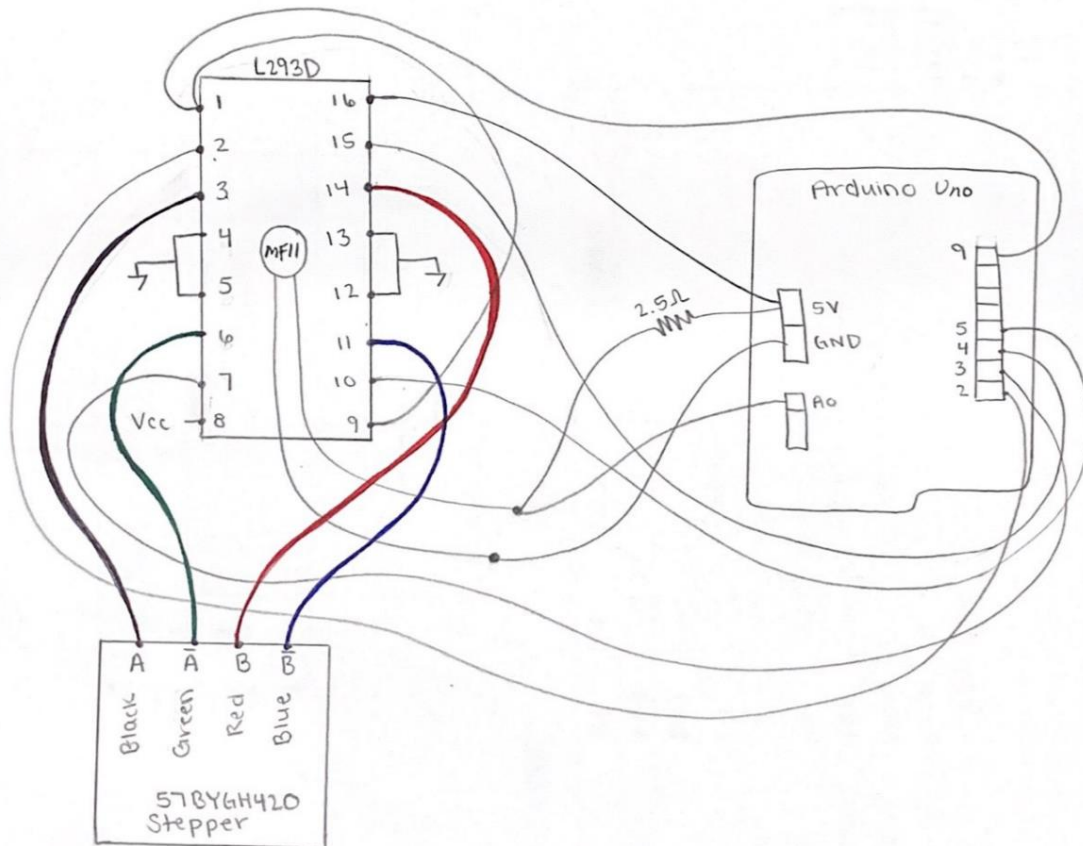 L293D
1
2
3
4
5
6
7
Vcc
8
16
15
14
13
12
11
10
9
MF11
2.5Ω
Arduino Uno
9
5
4
3
2
5V
GND
A0
A
A̅
B
B̅
Black
Green
Red
Blue
57BYGH420
Stepper